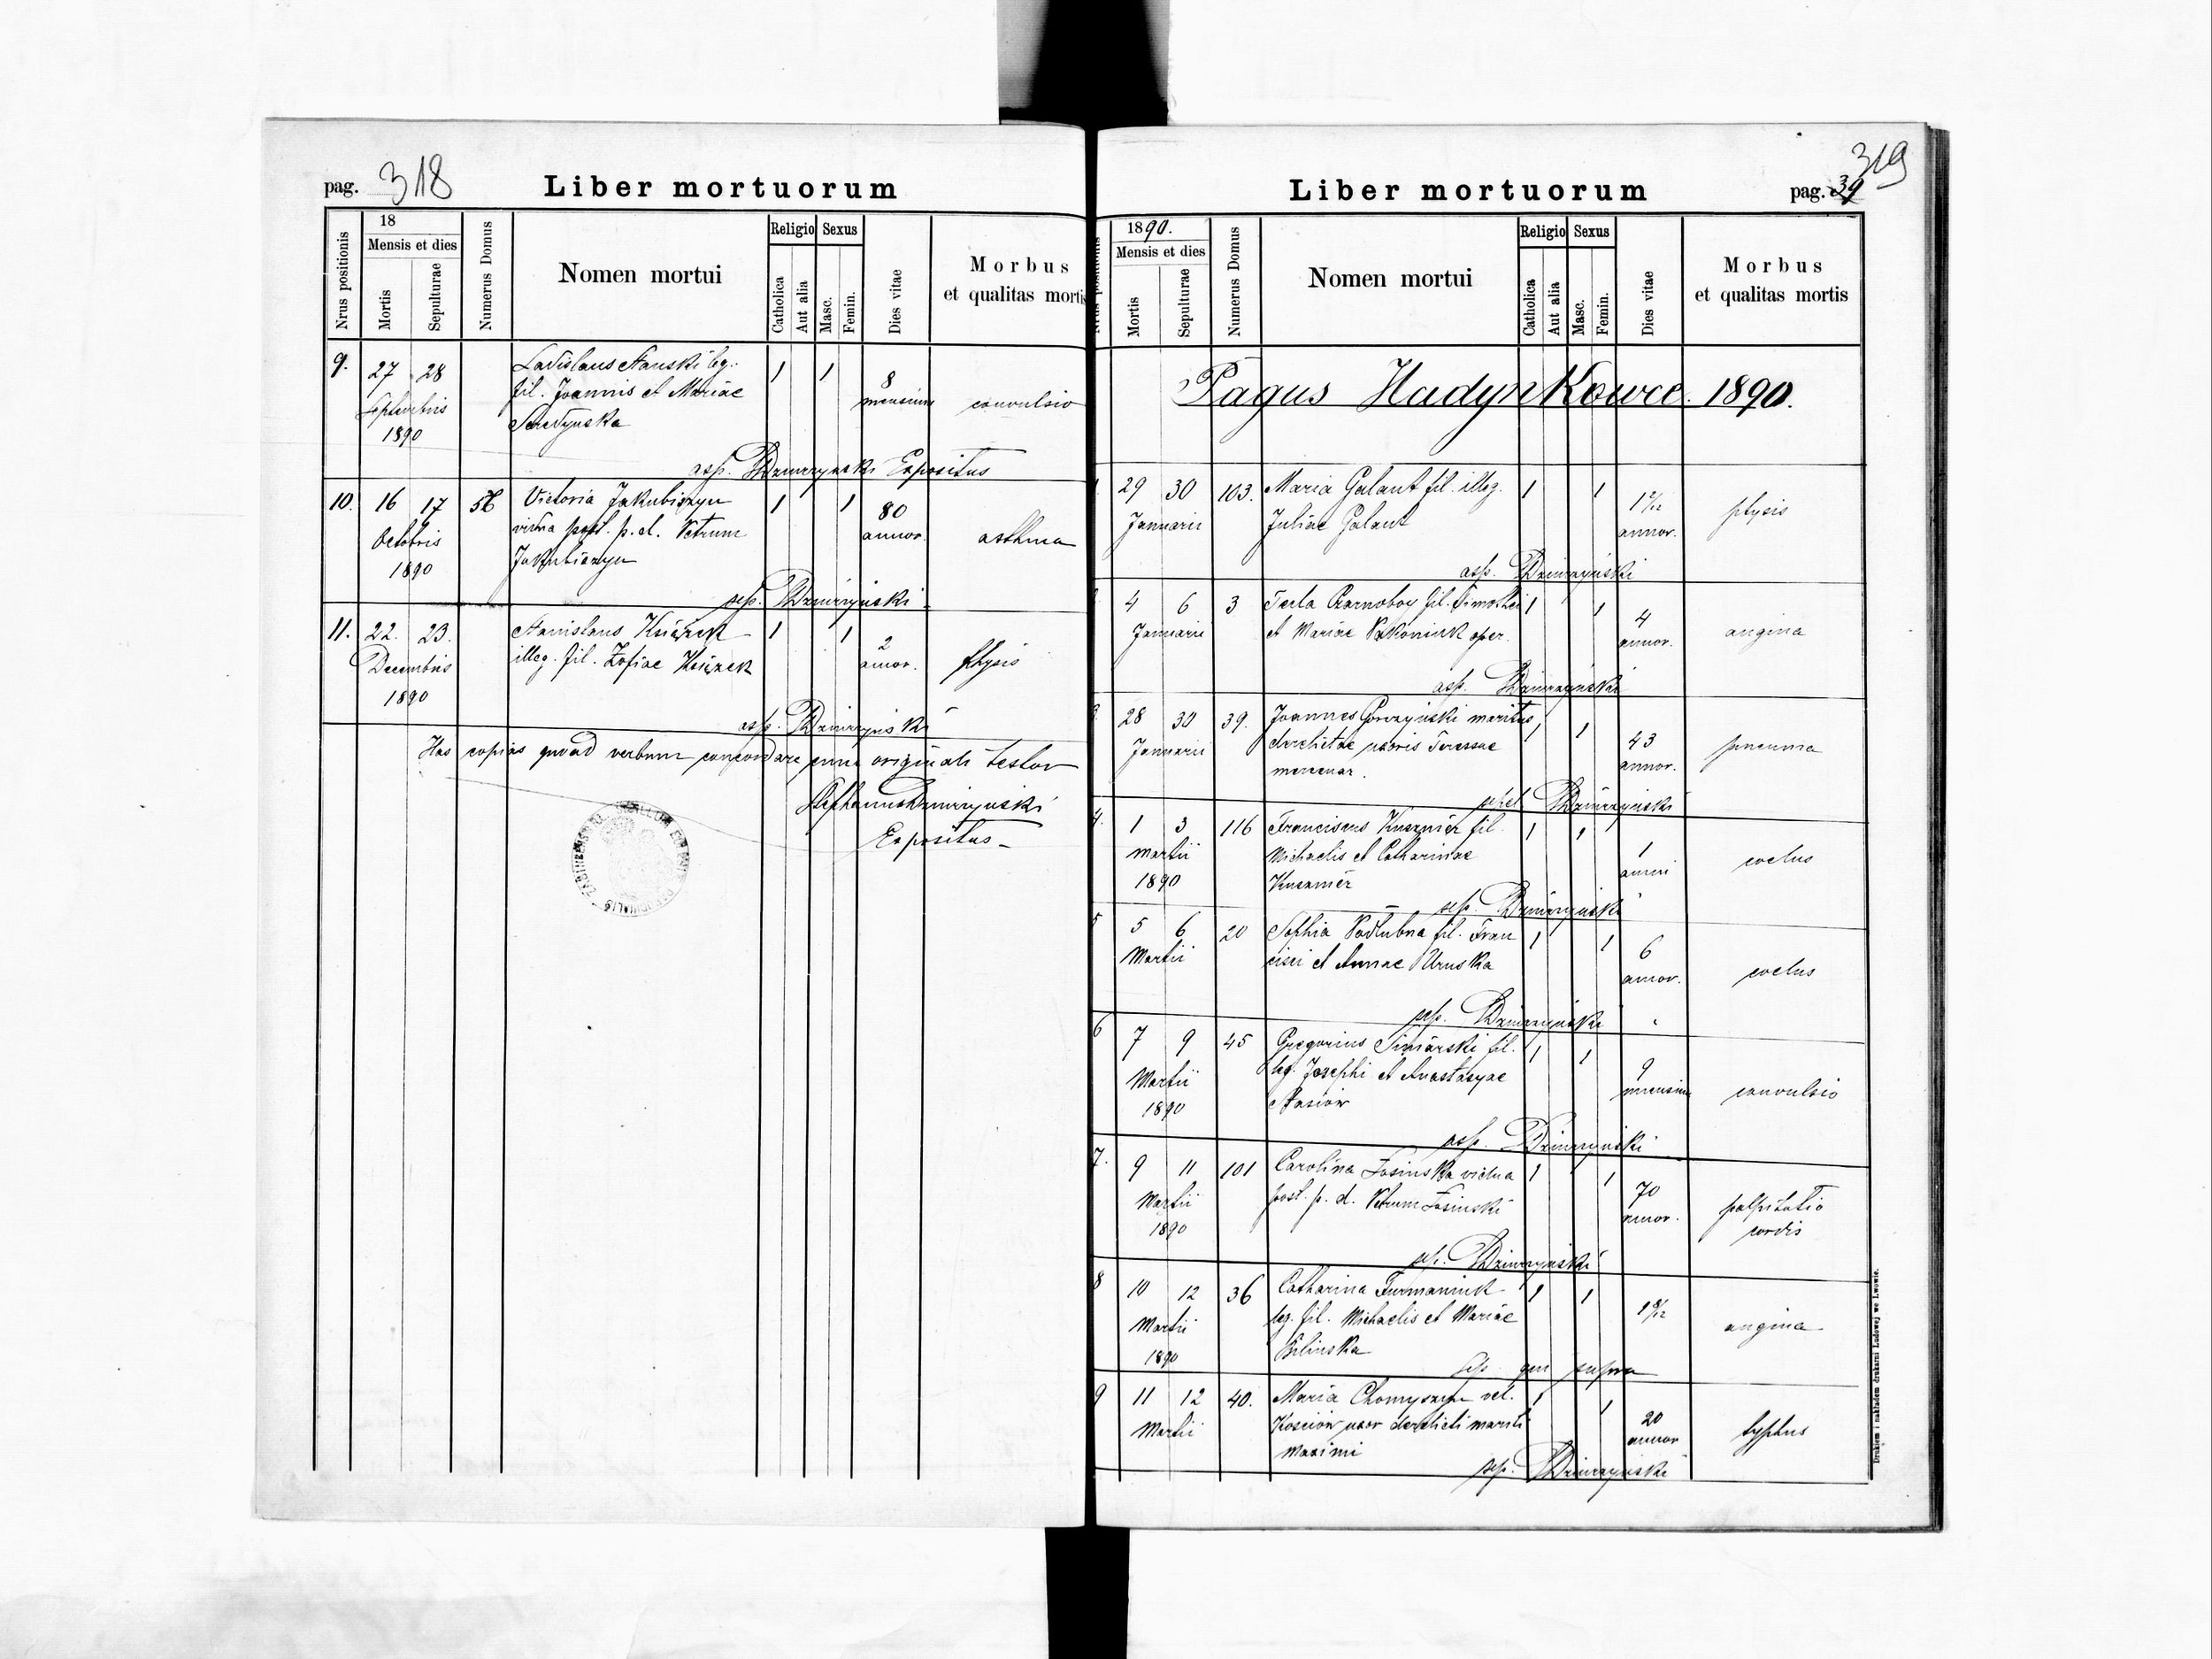 pag. 318
Liber mortuorum
Nrus positionis
18
Mensis et dies
Mortis
Sepulturae
Numerus Domus
Nomen mortui
Religio
Catholica
Aut alia
Sexus
Masc.
Femin.
Dies vitae
Morbus
et qualitas mortis
9. 27 28 Ladislaus Stanski leg. 1 1 8
Septembris fil. Joannis et Mariae mensium convulsio
1890
asp. Dzmirzynski Expositus
10. 16 17 56 Victoria Jakubiszyn 1 1 80
Octobris vidua post. p. d. Petrum annor. asthma
1890 Jakubiszyn
asp. Dzmirzynski
11. 22. 23. Stanislaus Książek 1 1 2
Decembris illeg. fil. Zofiae Książek annor. phtysis
1890
asp. Dzmirzynski
Has copias quoad verbum concordare cum originali testor
Stephanus Dzmirzynski
Expositus
319
Liber mortuorum
pag. 39
Nrus positionis
1890.
Mensis et dies
Mortis
Sepulturae
Numerus Domus
Nomen mortui
Religio
Catholica
Aut alia
Sexus
Masc.
Femin.
Dies vitae
Morbus
et qualitas mortis
Pagus Hadynkowce. 1890.
29 30 103. Maria Galant fil. illeg. 1 1
Januarii Juliae Galant annor. ptysis
asp. Dzmirzynski
4 6 3 Tecla Czarnoboy fil. Timothei 1 1 4
Januarii et Mariae oper. annor. angina
asp. Dzmirzynski
3. 28 30 39. Joannes Gorczyński maritus 1 1 43
Januarii derelictae uxoris Teressae annor. pneuma
mercenar.
asp. Dzmirzynski
4. 1 3 116 Franciscus Kusznier fil. 1 1 1
Martii Michaelis et Catharinae anni
1890 Kusznier
asp. Dzmirzynski
5 5 6 20 Sophia Podłubna fil. Fran 1 1 6
Martii cisci et Annae Uruska annor.
asp. Dzmirzynski
6 7 9 45 Gregorius fil. 1 1 9
Martii leg. Josephi et Anastasyae mensium convulsio
1890
asp. Dzmirzynski
7. 9 11 101 Carolina Josinska vidua 1 1 70
Martii post. p. d. Petrum Josinski annor. palpitatio
1890 cordis
asp. Dzmirzynski
8 10 12 36 Catharina Furmaniuk 1 1
Martii leg. fil. Michaelis et Mariae angina
1890 Bilinska
asp. qui supra
9 11 12 40. Maria Chomyszyn vel. 1 1 20
Martii Kosciów uxor derelicti mariti annor typhus
Maximi
asp. Dzmirzynski
Drukiem i nakładem drukarni Ludowej we Lwowie.